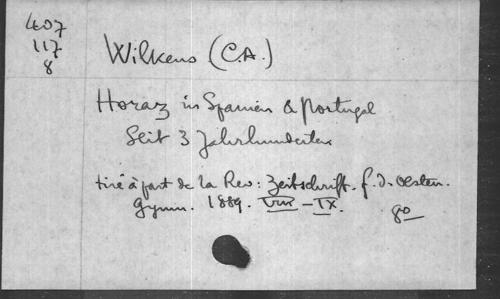 407
117
8
Wilkens (C.A.)
Horaz in Spanien & Portugal
Seit 3 Jahrhunderten
tiré à part de la Rev: Zeitschrift. f. d. Oesten.
Gymn. 1889. VIII - IX. 8o